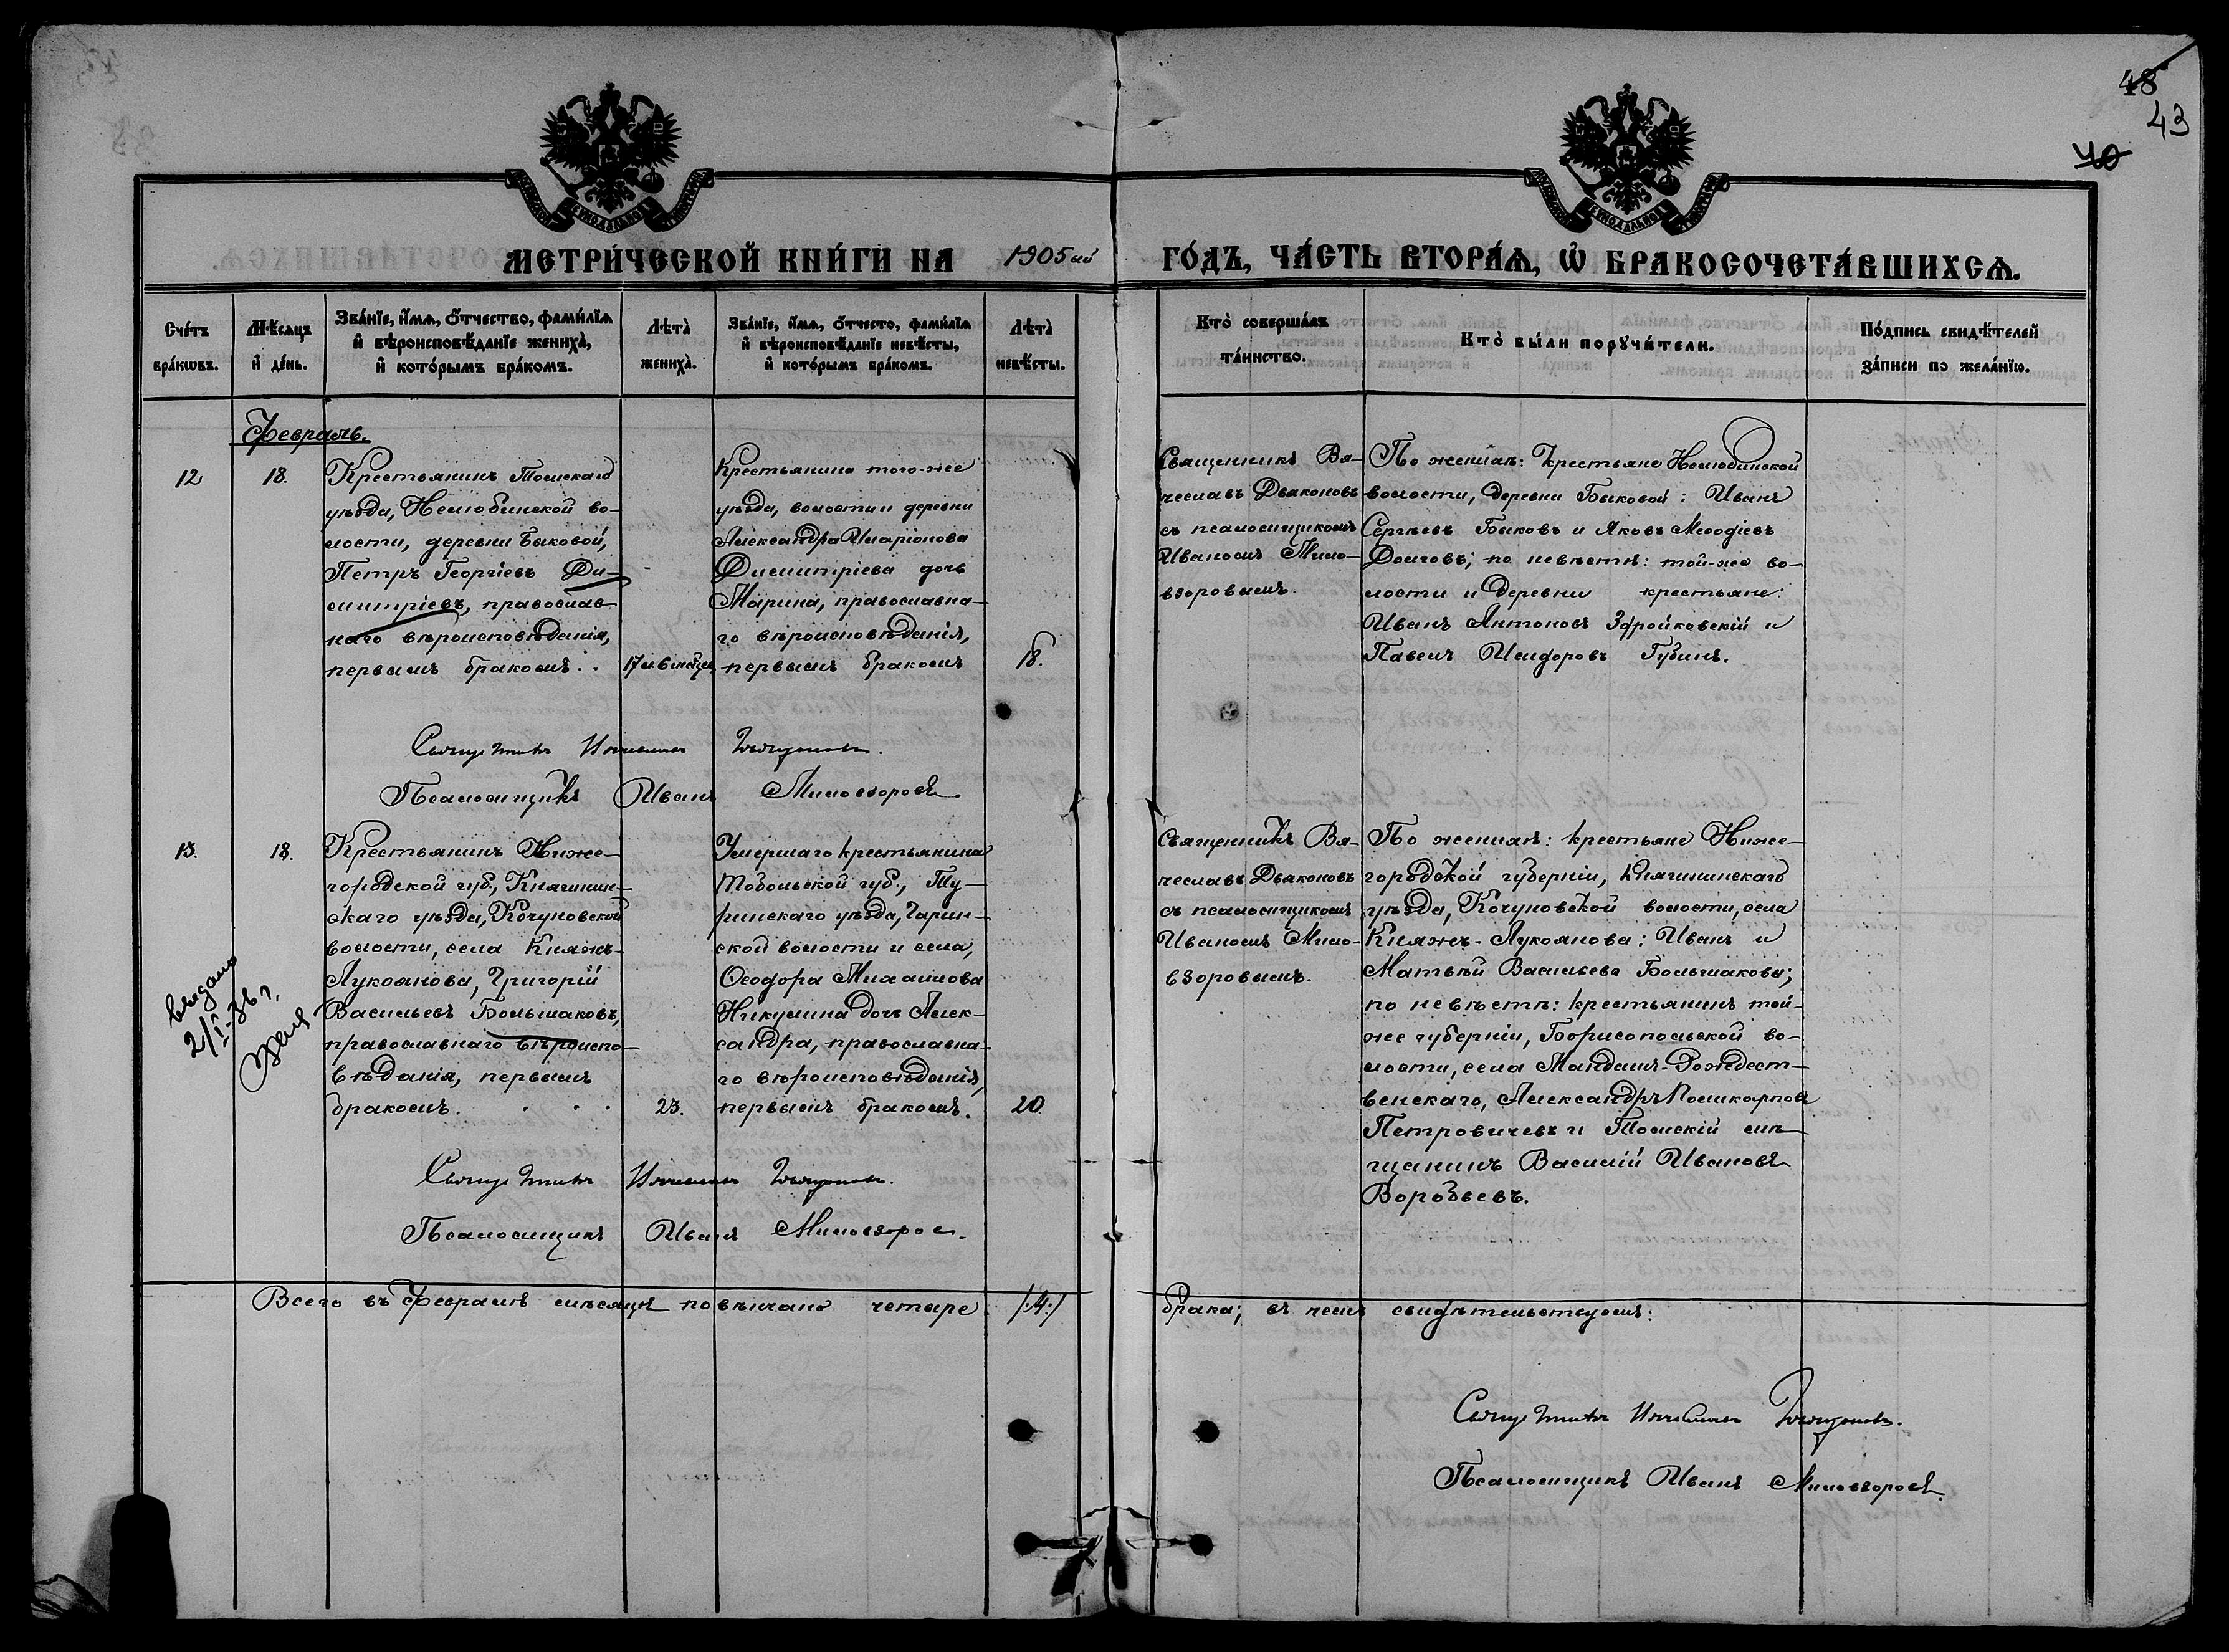 48
43
40
МЕТРИ́ЧЕСКОЙ КНИ́ГИ НА 1905ый ГО́ДЪ, ЧА́СТЬ ВТОРА́Ѧ, Ѡ БРАКОСОЧЕТА́ВШИХСѦ.
Сче́тъ бра́кѡвъ.
Мѣ́сѧцъ и де́нь.
Зва́нїе, и́мѧ, ѻ́тчество, фами́лїѧ
и вѣроисповѣ́данїе жениха̀,
и кото́рымъ бра́комъ.
Лѣта̀ жениха̀.
Зва́нїе, и́мѧ, ѻ́тчесто, фами́лїѧ
и вѣроисповѣ́данїе невѣ́сты,
и кото́рымъ бра́комъ.
Лѣта̀ невѣ́сты.
Кто̀ соверша́лъ
та́инство.
Кто̀ бы́ли порꙋчи́тели.
По́дпись свидѣ́телей
за́писи по жела́нїю.
Февраль.
12
18.
Крестьянинъ Томскаго
уѣзда, Нелюбинской во-
лости, деревни Быковой,
Петръ Георгіевъ Ди-
митріевъ, православ-
наго вѣроисповѣданія,
первымъ бракомъ..
Крестьянина того-же
уѣзда, волости и деревни
Александра Иларіонова
Димитріева дочь
Марина, православна-
го вѣроисповѣданія,
первымъ бракомъ
18.
Священникъ Вя-
чеславъ Дьяконовъ
съ псаломщикомъ
Иваномъ Мило-
взоровымъ.
По женихѣ: крестьяне Нелюбинской
волости, деревни Быковой: Иванъ
Сергѣевъ Быковъ и Яковъ Меѳодіевъ
Долговъ; по невѣстѣ: той-же во-
лости и деревни крестьяне:
Иванъ Антоновъ Здройковскій и
Павелъ Исидоровъ Губинъ.
Священникъ Вячеславъ Дьяконовъ.
Псаломщикъ Иванъ Миловзоровъ
13.
18.
Крестьянинъ Ниже-
городской губ., Княгинин-
скаго уѣзда, Кочуновской
волости, села Княжъ-
Лукоянова, Григорій
Васильевъ Большаковъ,
православнаго вѣроиспо-
вѣданія, первымъ
бракомъ.
23.
Умершаго крестьянина
Тобольской губ., Ту-
ринскаго уѣзда, Гарин-
ской волости и села,
Ѳеодора Михаилова
Никулина дочь Алек-
сандра, православна-
го вѣроисповѣданія,
первымъ бракомъ.
20.
Священникъ Вя-
чеславъ Дьяконовъ
съ псаломщикомъ
Иваномъ Мило-
взоровымъ.
По женихѣ: крестьяне Ниже-
городской губерніи, Княгининскаго
уѣзда, Кочуновской волости, села
Княжъ-Лукоянова: Иванъ и
Матвѣй Васильева Большаковы;
по невѣстѣ: крестьянинъ той-
же губерніи, Борисопольской во-
лости, села Мандашъ-Рождест-
венскаго, Александръ Поликарповъ
Петровичевъ и Томскій мѣ-
щанинъ Василій Ивановъ
Воробьевъ.
выдано
2/I-36 г.
Священникъ Вячеславъ Дьяконовъ.
Псаломщикъ Иванъ Миловзоров.
Всего въ февралѣ мѣсяцѣ повѣнчано четыре /:4:/ брака; въ чемъ свидѣтельствуемъ:
Священникъ Вячеславъ Дьяконовъ.
Псаломщикъ Иванъ Миловзоровъ.